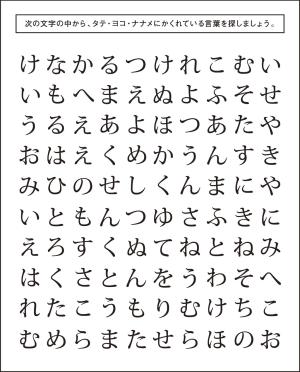 次の文字の中から、タテ・ヨコ・ナナメにかくれている言葉を探しましょう。
けなかるつけれこむい
いもへまえぬよふそせ
うるえあよほつあたや
おはえくめかうんすき
みひのせしくんまにや
いともんつゆさふきに
えろすくぬてねとねみ
はくさとんをうわそへ
れたこうもりむけちこ
むめらまたせらほのお